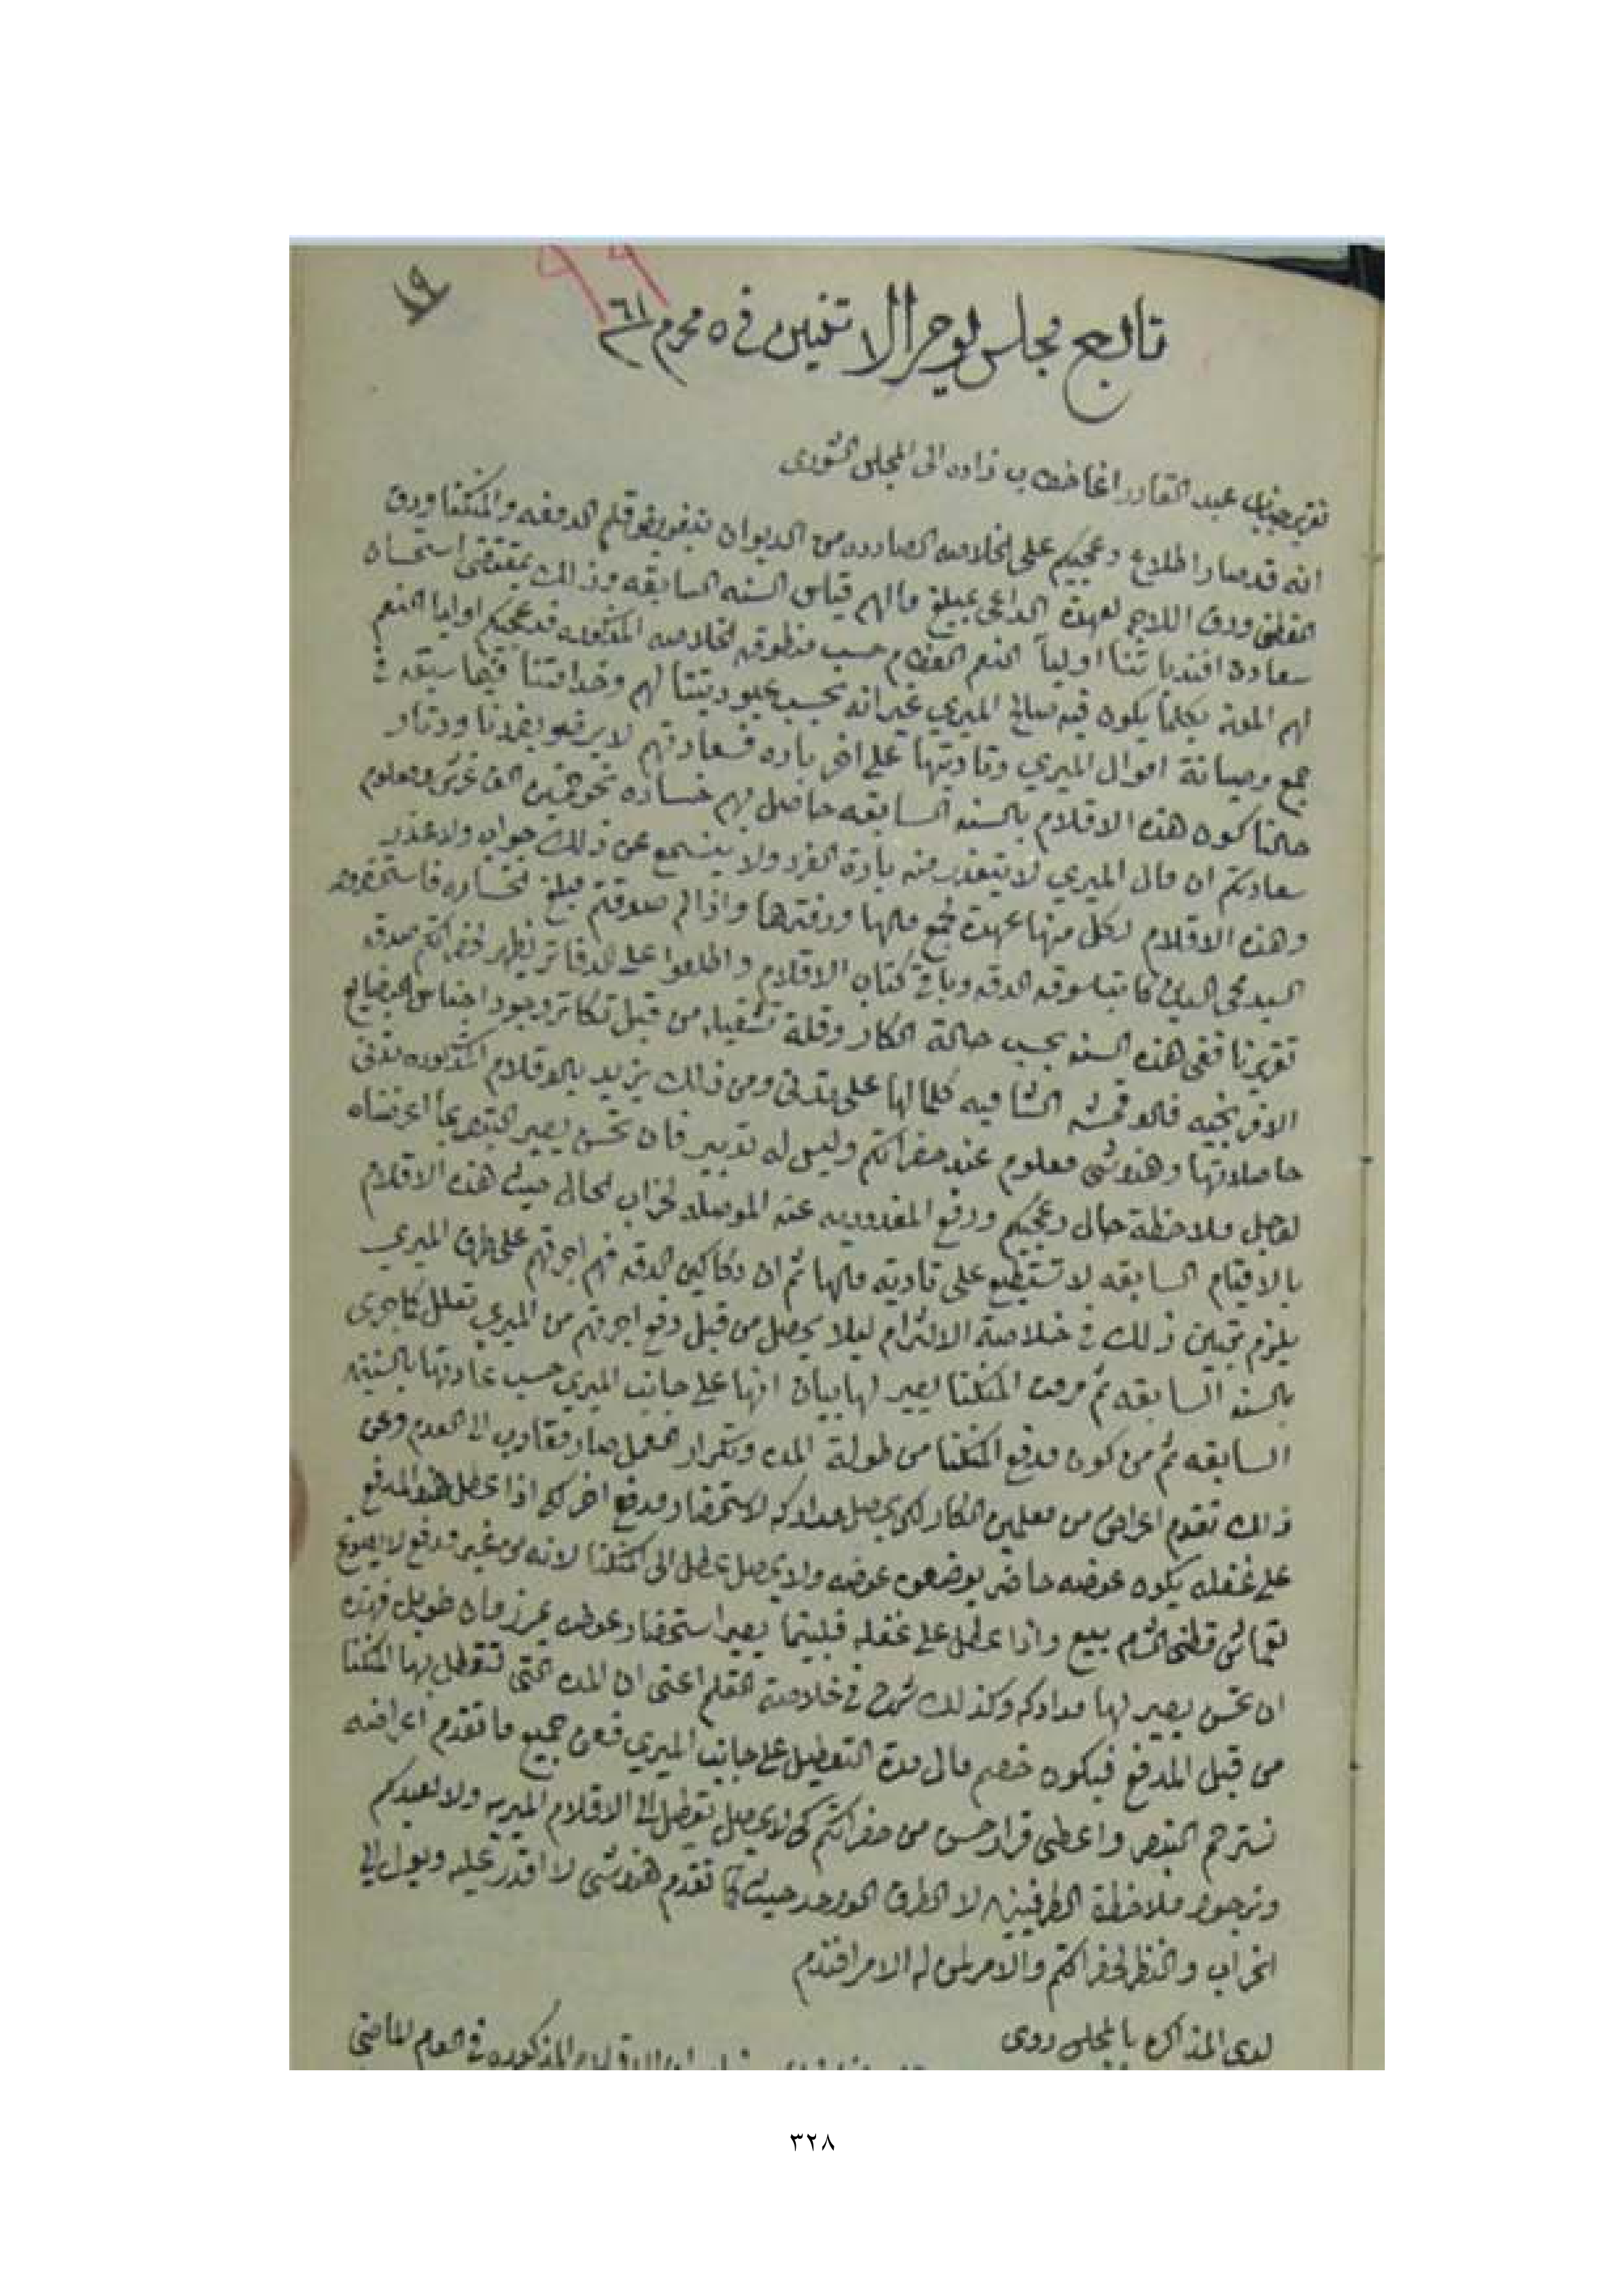 ١٩
تابع مجلس يوم الاثنين في ٥ محرم سنة ٦١
تقرير جناب عبد القادر اغا خطاب زاده الى المجلس الشورى
انه قد صار اطلاع دعجيكم على الخلاصه الصادره من الديوان بتفويض قلم الدمغه والمنكنا ورق
القطني ورق اللاجه لعهدة الداعي بمبلغ مالهم قياس السنه السابقه وذالك بمقتضى استحسان
سعادة افندياتنا اوليآ النعم العظام حسب منطوقه الخلاصه المذكوره فدعجيكم اوليا النعم
لهم المونه بكلما يكون فيه صالح الميري غير انه بحسب عبوديتنا لهم وخدامتنا فيما سبقه في
جمع وصيانة اموال الميري وتاديتها على اخر باره فسعادتهم لا يرضو بضررنا ودثار
حالنا كون هذه الاقلام بالسنه السابقه حاصل بهم خساره نحو الف غرش ومعلوم
سعادتكم ان مال الميري لا يتعذر منه بارة الفرد ولا ينسمع عن ذلك جواب ولا عذر
وهذه الاقلام لكل منها عهدة لجمع مالها ودفترها واذا لم صدقتم مبلغ الخساره فاستحضروا
السيد محي الدين كاتب سوقه الدقه وباقي كتاب الاقلام واطلعوا على الدفاتر يظهر لحضراتكم صدقه
تقريرنا ففي هذه السنه بحسب حالة الكار وقلة تشغيله من قبل تكاثر وجود اجناس البضايع
الافرنجيه فالاقمشه الشاميه كلمالها على تدني ومن ذالك يزيد بالاقلام المذكوره تدني
حاصلاتها وهذا شي معلوم عند حضراتكم وليس له تدبير فان تحسن يصير التبصر بما اعرضناه
لفاجل وملاحظة حال دعجيكم ورفع المغدوريه عنه الموصله لخراب لحاله حيث هذه الاقلام
بالاقيام السابقه لا تستطيع على تاديته مالها ثم ان دكاكين الدقه فهم اجرتهم على طرف الميري
يلزم تبيين ذلك في خلاصة الالتزام ليلا يحصل من قبل دفع اجرتهم من الميري تعلل كما جرى
بالسنه السابقه ثم مرمت المنكنا يصير لها بيان انها على جانب الميري حسب عادتها بالسنين
السابقه ثم من كون مدفع المنكنا من طولة المده وتكرار العمل صار مقارب الى العدم وعن
ذالك تقدم اعراض من معلمين الكار لكي يحصل مداركه لاستحضار مدفع اخر لكي اذا عطل هذا المدفع
على غفله يكون عوضه حاضر يوضعون عوضه ولا يحصل عطل الى المنكنا لانه من غير مدفع لا يصوغ
تماشي قطني الشام ببيع واذا عطل على غفله فبينما يصير استحضار عوضه يمر زمان طويل فهذه
ان تحسن يصير لها مداركه وكذلك شرح في خلاصة القلم اعني ان المده التي تتعطل بها المنكنا
من قبل المدفع فيكون خصم مال مدة التعطيل على جانب الميري فعن جميع ما تقدم اعراضه
نسترحم التبصر واعطى قرار حسن من حضراتكم كي لا يحصل تعطيل الى الاقلام الميريه ولا لعبدكم
ونرجو ملاحظة الطرفين لا الطرف الواحد حيث كما تقدم هذا شي لا اقدر عليه ويول الى
الخراب والنظر لحضراتكم والامر لمن له الامر افندم
لدى المذاكره بالمجلس روي
الاقلام المذكوره في العام الماضي
٣٢٨